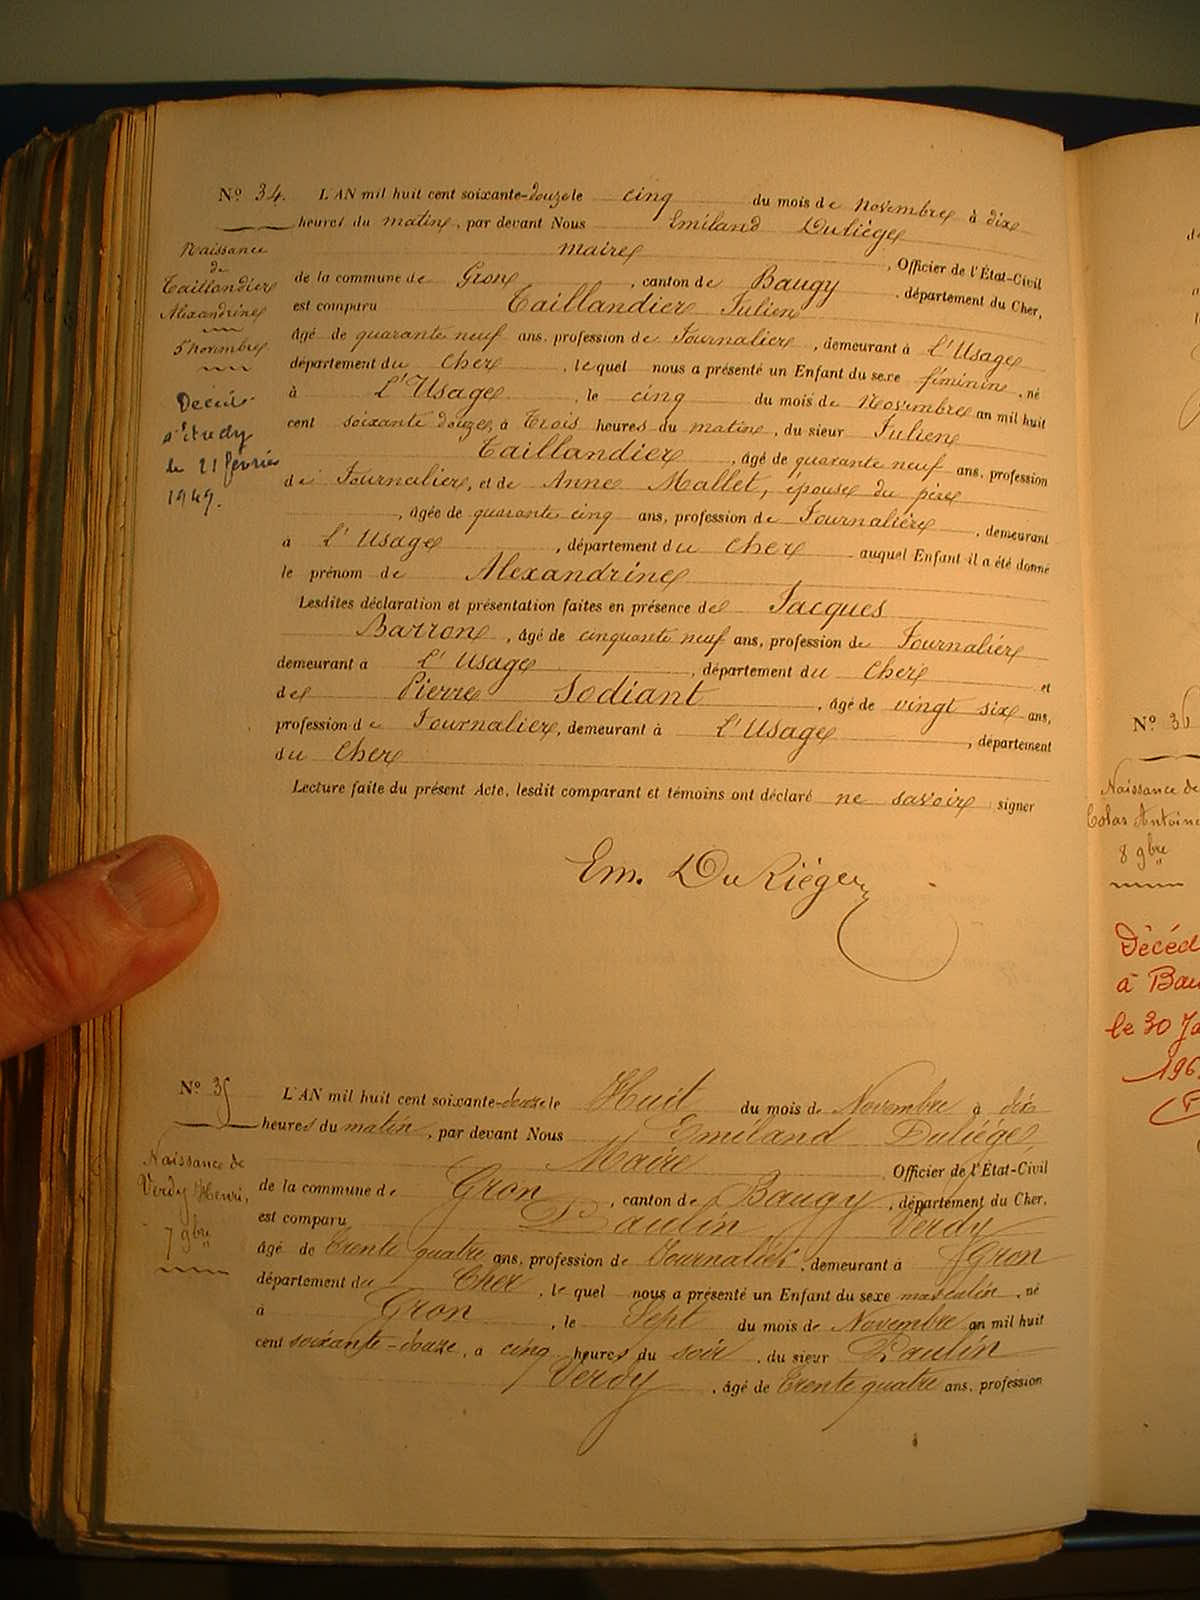 No 34. L'AN mil huit cent soixante-douze le cinq du mois de Novembre à dix
heures du matin, par devant Nous Emiland Duliège
maire, Officier de l'État-Civil
de la commune de Gron, canton de Baugy, département du Cher,
est comparu Taillandier Julien
âgé de quarante neuf ans, profession de Journalier, demeurant à l'Usage
département du Cher, lequel nous a présenté un Enfant du sexe féminin, né
à l'Usage, le cinq du mois de Novembre an mil huit
cent soixante douze, à Trois heures du matin, du sieur Julien
Taillandier, âgé de quarante neuf ans, profession
de Journalier, et de Anne Mallet, épouse du père
, âgée de quarante cinq ans, profession de Journalière, demeurant
à l'Usage, département du Cher auquel Enfant il a été donné
le prénom de Alexandrine
Lesdites déclaration et présentation faites en présence de Jacques
Barron, âgé de cinquante neuf ans, profession de Journalier
demeurant à l'Usage, département du Cher et
de Pierre Sodiant, âgé de vingt six ans,
profession de Journalier, demeurant à l'Usage, département
du Cher
Lecture faite du présent Acte, lesdit comparant et témoins ont déclaré ne savoir signer
Naissance
de
Taillandier
Alexandrine
5 Novembre
le 21 février
1949.
No 35 L'AN mil huit cent soixante-douze le Huit du mois de Novembre à dix
heures du matin, par devant Nous Emiland Duliège
Maire Officier de l'État-Civil
de la commune de Gron, canton de Baugy, département du Cher,
est comparu Paulin Verdy
âgé de Trente quatre ans, profession de Journalier, demeurant à Gron
département du Cher, lequel nous a présenté un Enfant du sexe masculin, né
à Gron, le Sept du mois de Novembre an mil huit
cent soixante-douze, à cinq heures du soir, du sieur Paulin
Verdy, âgé de Trente quatre ans, profession
Naissance de
Verdy Henri,
7 9bre
No 36
Naissance de
Colas Antoine
8 9bre
Décéd
à Bau
le 30 Ja
196